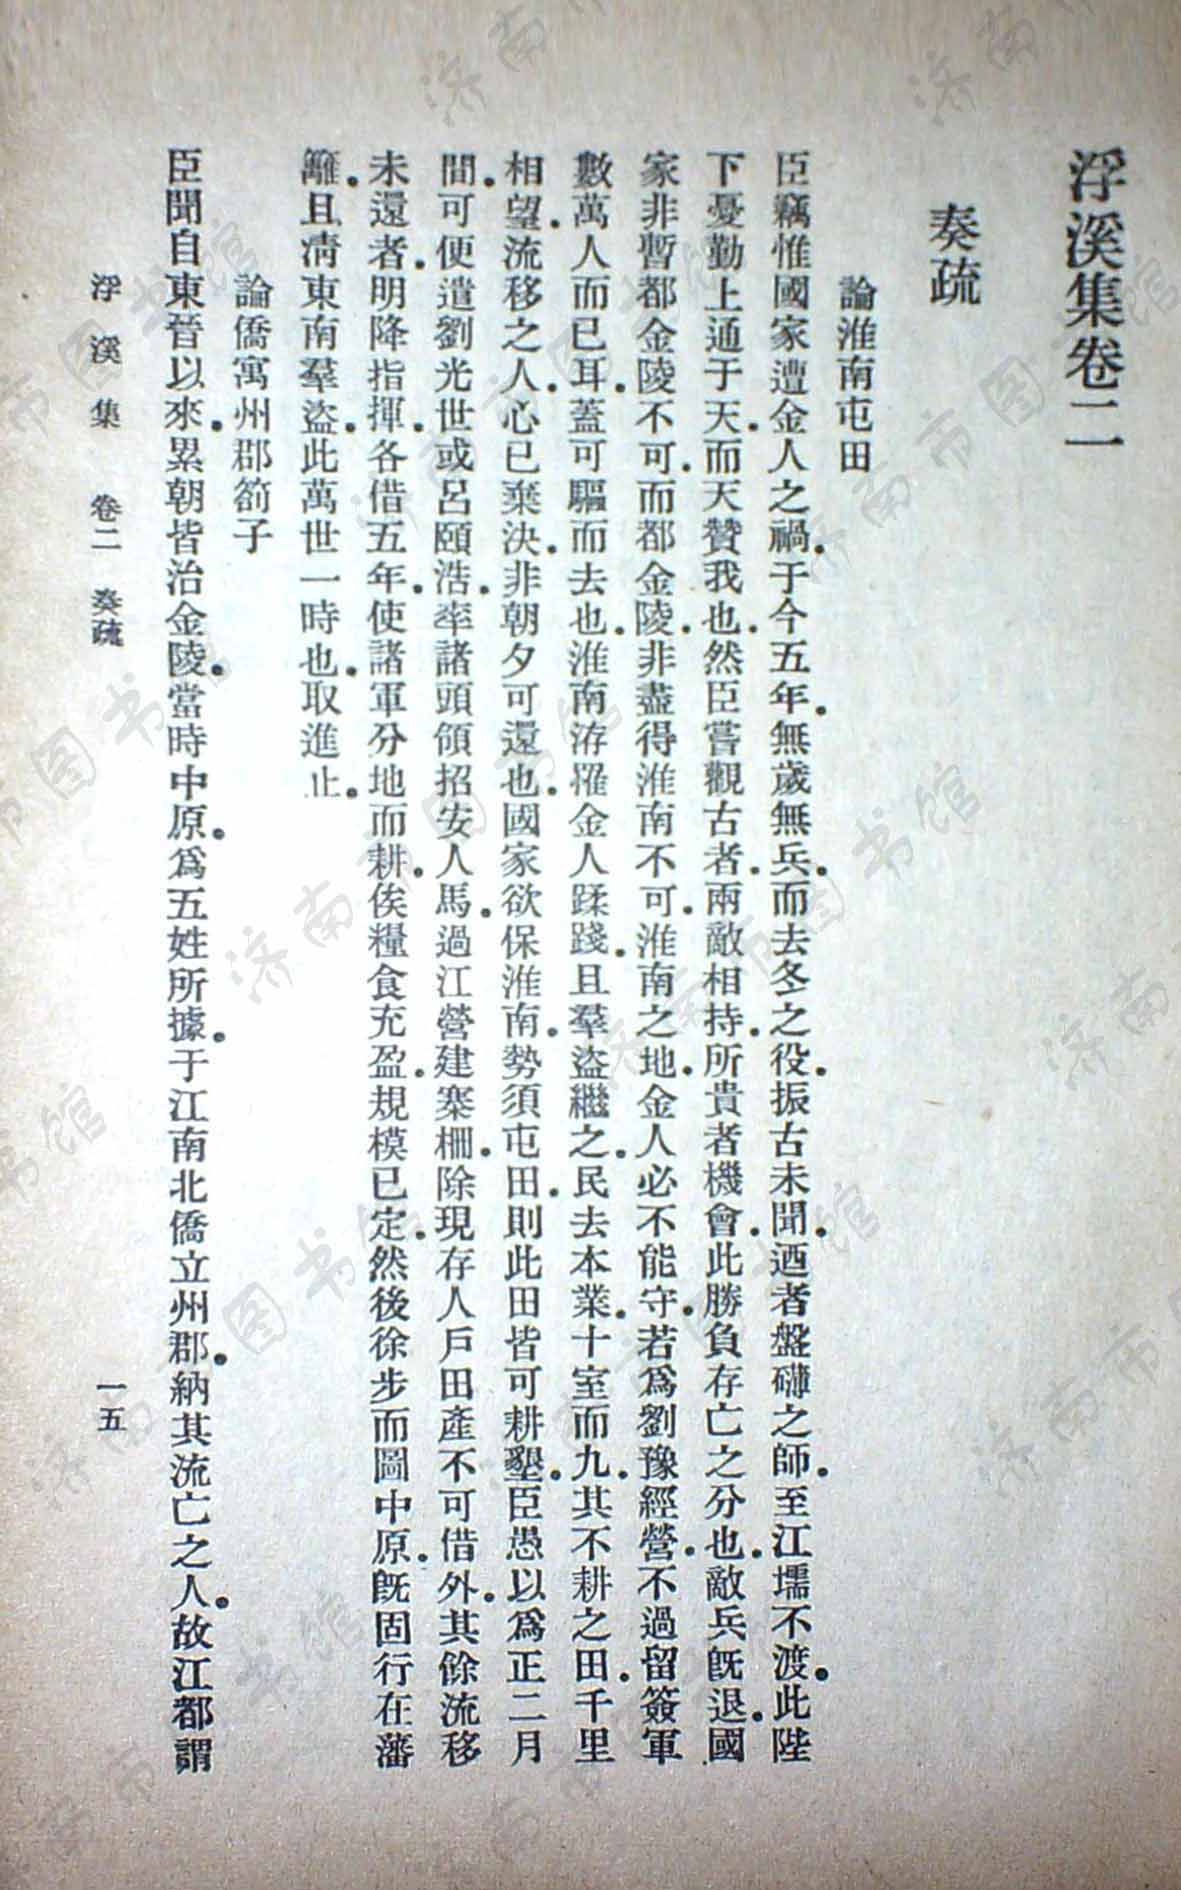 浮溪集卷二
奏疏
論淮南屯田
臣竊惟國家遭金人之禍。于今五年。無歲無兵。而去冬之役。振古未聞。迺者盤礴之師。至江壖不渡。此陛
下憂勤上通于天。而天贊我也。然臣嘗觀古者。兩敵相持。所貴者機會。此勝負存亡之分也。敵兵旣退。國
家非暫都金陵不可。而都金陵。非盡得淮南不可。淮南之地。金人必不能守。若爲劉豫經營。不過留簽軍
數萬人而已耳。蓋可驅而去也。淮南洊罹金人蹂踐。且羣盜繼之。民去本業。十室而九。其不耕之田。千里
相望。流移之人。心已棄決。非朝夕可還也。國家欲保淮南。勢須屯田。則此田皆可耕墾。臣愚以爲正二月
間。可便遣劉光世或呂頤浩。率諸頭領招安人馬。過江營建寨柵。除現存人戶田產不可借外。其餘流移
未還者。明降指揮。各借五年。使諸軍分地而耕。俟糧食充盈。規模已定。然後徐步而圖中原。旣固行在藩
籬。且淸東南羣盜。此萬世一時也。取進止。
論僑寓州郡箚子
臣聞自東晉以來。累朝皆治金陵。當時中原。爲五姓所據。于江南北僑立州郡。納其流亡之人。故江都謂
浮溪集 卷二 奏疏 一五
济南市图书馆